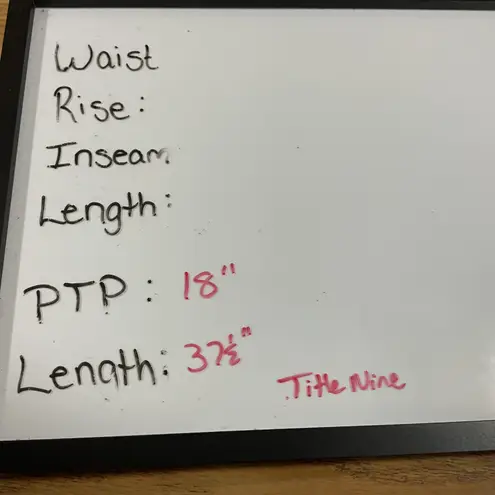 Waist
Rise:
Inseam
Length:
PTP: 18"
Length: 37½"
Title Nine